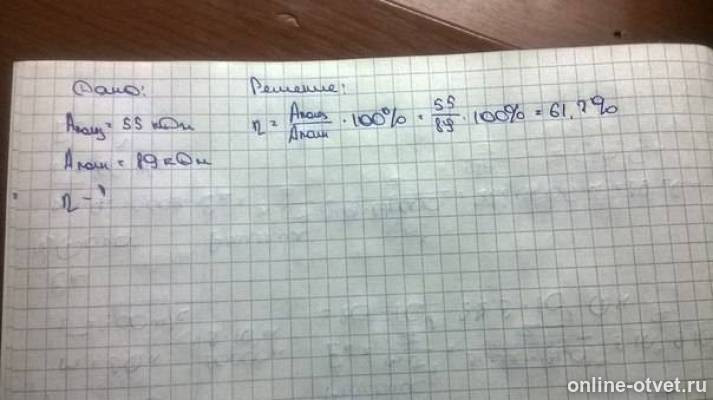 Дано:
Aполз = 55 кДж
Aполн = 89 кДж
η - ?
Решение:
η = Aполз/Aполн · 100% = 55/89 · 100% = 61,7%
online-otvet.ru